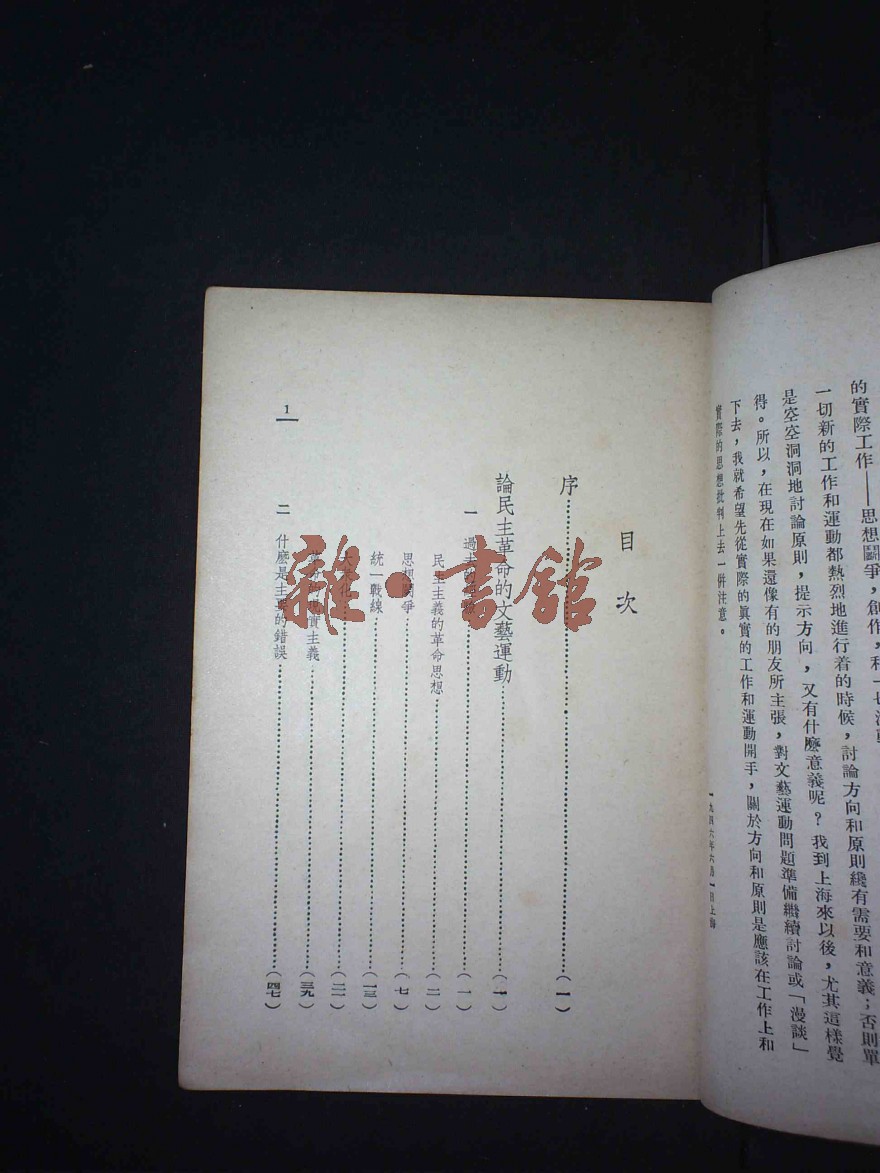 的實際工作——思想鬭爭，創作，和一切活動
一切新的工作和運動都熱烈地進行着的時候，討論方向和原則纔有需要和意義；否則單
是空空洞洞地討論原則，提示方向，又有什麽意義呢？我到上海來以後，尤其這樣覺
得。所以，在現在如果還像有的朋友所主張，對文藝運動問題準備繼續討論或「漫談」
下去，我就希望先從實際的眞實的工作和運動開手，關於方向和原則是應該在工作上和
實際的思想批判上去一併注意。
一九四六年六月一日上海
目次
序（一）
論民主革命的文藝運動（一）
一 過去的（一）
民主主義的革命思想（二）
思想鬭爭（七）
統一戰線（一三）
大衆化（二一）
革命的現實主義（三九）
二 什麽是主要的錯誤（四七）
1
雜·書館